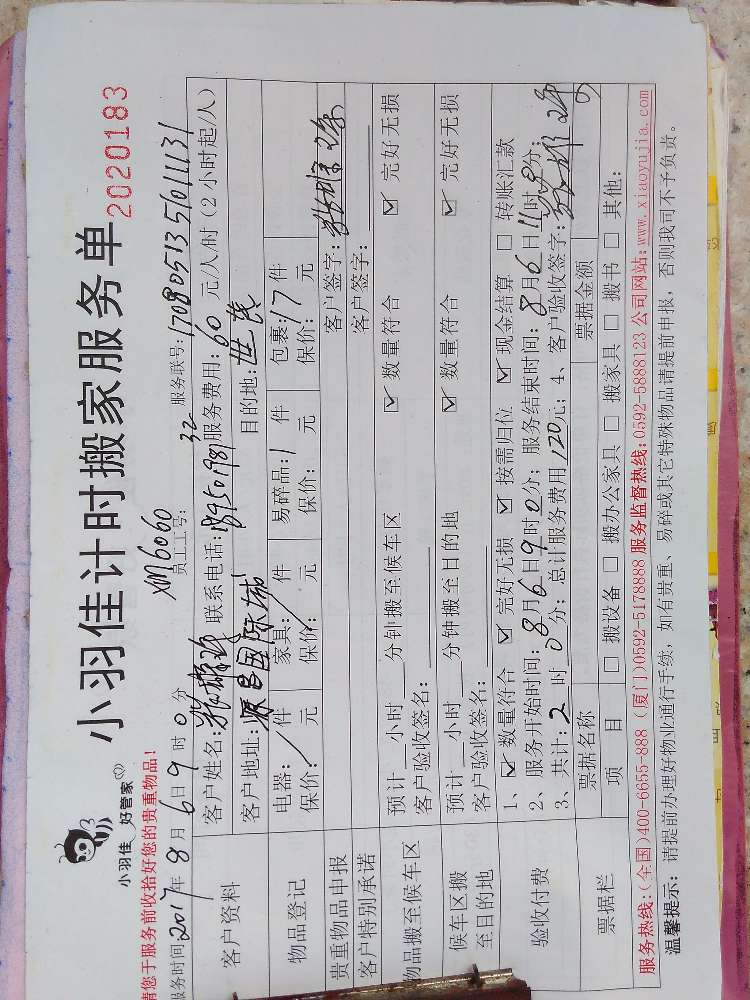 小羽佳计时搬家服务单
2020183
小羽佳 好管家
请您于服务前收拾好您的贵重物品！
XM6060 32
服务时间2017年8月6日9时0分 员工工号： 服务联号：17080513561011131
客户资料
客户姓名： 联系电话：18950198 服务费用：60元/人/时（2小时起/人）
客户地址：源昌国际城 目的地：世茂
物品登记
电器：/件 家具：/件 易碎品：1件 包裹：17件
保价：/元 保价：/元 保价： 元 保价： 元
贵重物品申报 客户签字：
客户特别承诺 客户签字：
物品搬至候车区
预计__小时__分钟搬至候车区 ☑数量符合 ☑完好无损
客户验收签名：
候车区搬至目的地
预计__小时__分钟搬至目的地 ☑数量符合 ☑完好无损
客户验收签名：
验收付费
1、☑数量符合 ☑完好无损 ☑按需归位 ☑现金结算 □转账汇款
2、服务开始时间：8月6日9时0分；服务结束时间：8月6日11时0分；
3、共计：2时0分；总计服务费用120元；4、客户验收签字：
票据栏
票据名称 票据金额
项 目 □搬设备 □搬办公家具 □搬家具 □搬书 □其他：
服务热线：（全国）400-6655-888（厦门）0592-5178888 服务监督热线：0592-5888123 公司网站：www.xiaoyujia.com
温馨提示：请提前办理好物业通行手续，如有贵重、易碎或其它特殊物品请提前申报，否则我司不予负责。